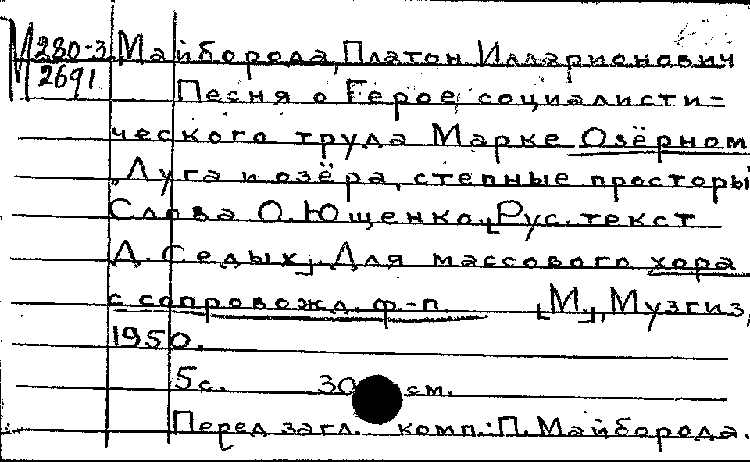 М 280-3 Майборода, Платон Илларионович
2691
Песня о Герое социалисти-
ческого труда Марке Озёрном
„Луга и озёра, степные просторы
Слова О. Ющенко. [Рус. текст
А. Седых]. Для массового хора
с сопровожд. ф.-п. [М.], Музгиз,
1950.
5с. 30 см.
Перед загл. комп.: П. Майборода.